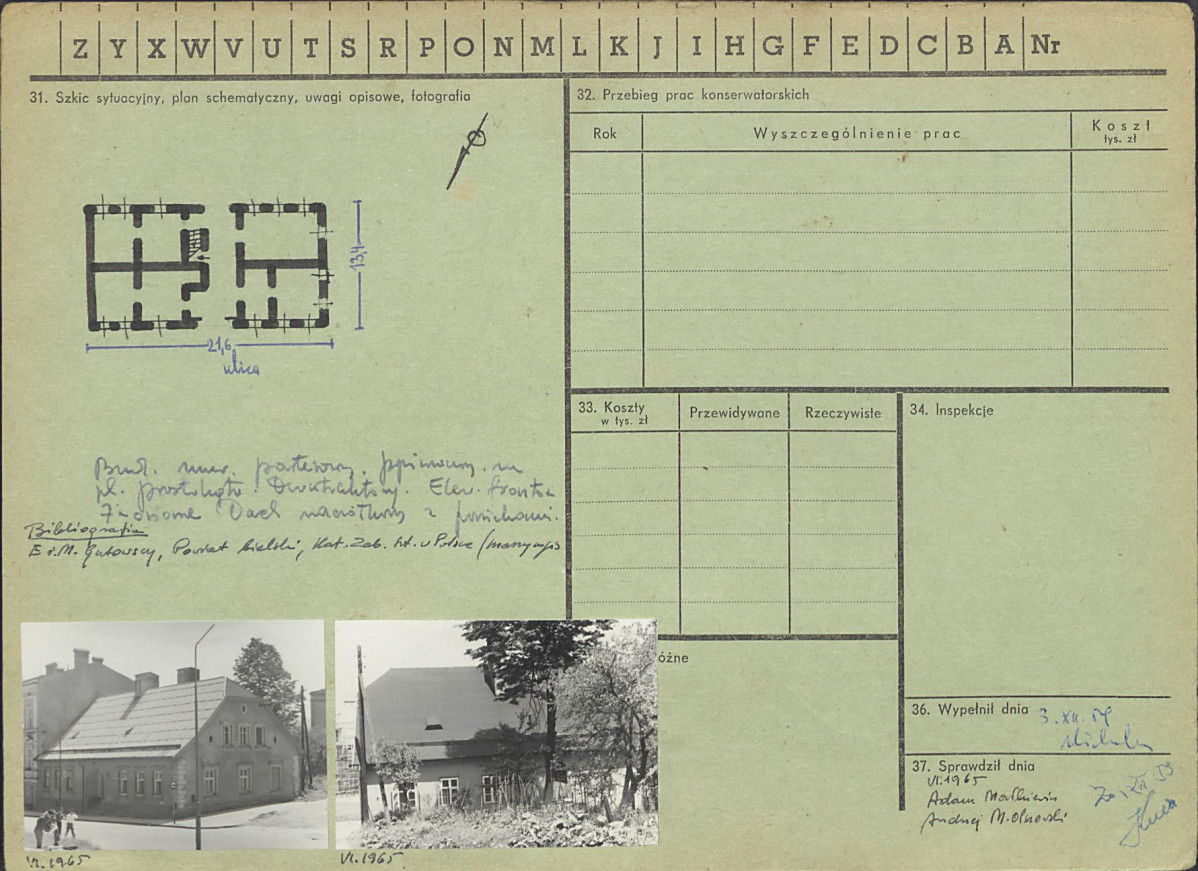 Z Y X W V U T S R P O N M L K J I H G F E D C B A Nr
31. Szkic sytuacyjny, plan schematyczny, uwagi opisowe, fotografia
13,4
21,6
ulica
Bud. mur. parterowy, ppiwniczony, na
pl. prostokąta. Dwutraktowy. Elew. frontowa
7-osiowa Dach naczółkowy z
Bibliografia
E. i M. Gutowscy, Powiat bielski, Kat. Zab. Szt. w Polsce (maszynopis
VI.1965
VI.1965
32. Przebieg prac konserwatorskich
Rok
Wyszczególnienie prac
Koszt
tys. zł
33. Koszty
w tys. zł
Przewidywane
Rzeczywiste
34. Inspekcje
óżne
36. Wypełnił dnia
3.XII.59
37. Sprawdził dnia
VI.1965
Adam Małkiewicz
Andrzej M. Olszewski